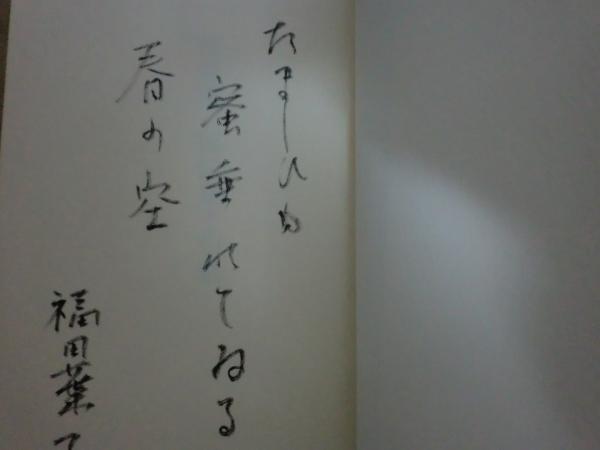 たましひの
蜜垂れてゐる
春の空
福田葉